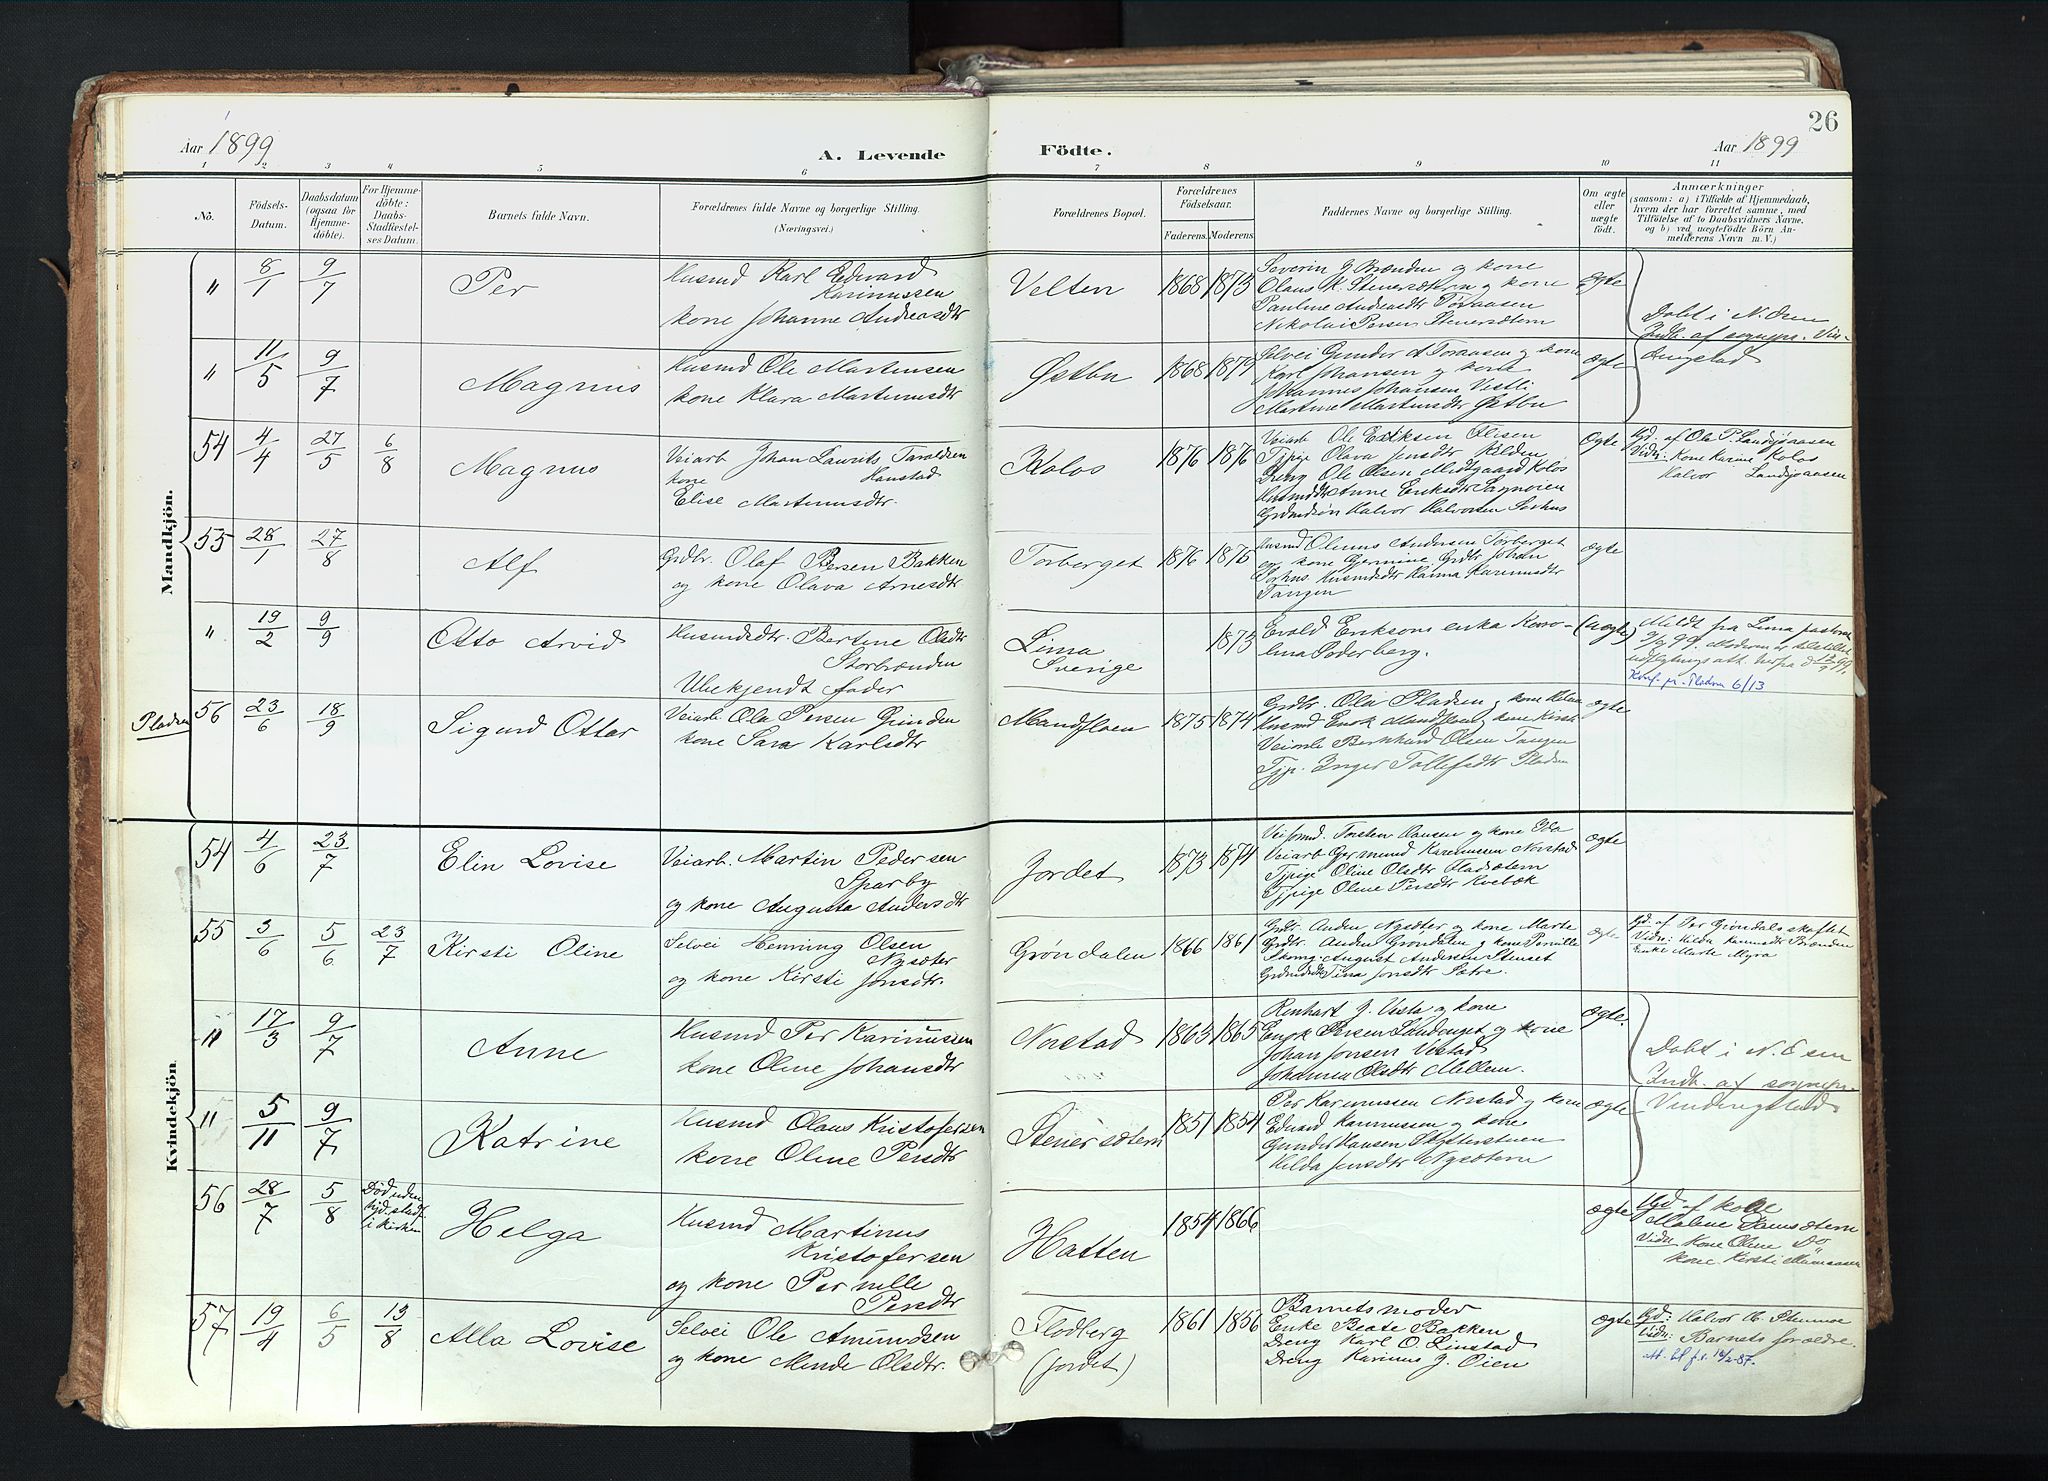 26
Aar 1899
A. Levende Födte.
Aar 1899
1 2 3 4 5 6 7 8 9 10 11
No.
Födsels-
Datum.
Daabsdatum
(ogsaa for
Hjemme-
döbte).
For Hjemme-
döbte:
Daabs-
Stadfæstel-
ses Datum.
Barnets fulde Navn.
Forældrenes fulde Navne og borgerlige Stilling.
(Næringsvei.)
Forældrenes Bopæl.
Forældrenes
Födselsaar.
Faderens. Moderens.
Faddernes Navne og borgerlige Stilling.
Om ægte
eller
uægte
födt.
Anmærkninger
(saasom: a) i Tilfælde af Hjemmedaab,
hvem der har forrettet samme, med
Tilföielse af to Daabsvidners Navne,
og b) ved uægtefödte Börn An-
melderens Navn m. V.)
Mandkjön.
" 8/1 9/7 Per
Husmd Karl Edvard
Karinussen
kone Johanne Andreasdtr
Velten 1868 1873
Severin J Brænden og kone
Olaus K. Stenersætern og kone
Pauline Andreasdtr Töraasen
Nikolai Persen Stenersætern
ægte
Döbt i N. Osen
Indb. af sognepr. Vin-
dingstad
" 11/5 9/7 Magnus
Husmd Ole Martinsen
kone Klara Martinusdtr
Østbu 1868 1879
Selvei Gunder A Toraasen og kone
Karl Johansen og kone
Johannes Johansen Vestli
Martine Martinsdtr Østbu
ægte
54 4/4 27/5 6/8 Magnus
Veiarb Johan Laurits Taraldsen
kone Hanstad
Elise Martinusdtr.
Kolos 1876 1876
Veiarb Ole Eriksen Olisen
Tjpige Olava Jensdtr Kilden
Dreng Ole Olsen Midtgaard Kolos
Husmdsdtr Anne Eriksdtr Sagmoien
Grdmdsön Halvor Halvorsen Sorhus
ægte
Hjd. af Ole P. Landsjøaasen
Vidn: Kone Karine Kolos
Halvor Landsjøaasen
55 28/1 27/8 Alf
Grdbr. Olaf Bersen Bakken
og kone Olava Arnesdtr
Torberget 1876 1875
Husmd Olunus Andersen Torberget
og kone Germine Grdbr Johan
Sorhus Husmdsdtr Karina Karinusdtr
Tangen
ægte
" 19/2 9/9 Otto Arvid
Husmdsdtr. Bertine Olsdtr
Storbrænden
Ubekjendt fader
Lima
Sverige
1873
Evald Eriksons enka Karo-
lina Soderberg.
(uægte)
Meldt fra Lima pastorat
9/9 99. Moderen er tildelt
udflytnings att. herfra
Konf. pr. Pladsen 6/13
Pladsen 56 23/6 18/9 Sigurd Ottar
Veiarb Ola Persen Grinden
kone Sara Karlsdtr
Mandfloen 1875 1874
Grdbr. Ole Pladsen og kone Helene
Husmd Enok Mandfloen og kone Kirsti
Veiarb Bernhard Olsen Tangen
Tjp. Inger Tollefsdtr Pladsen
ægte
Kvindekjön.
54 4/6 23/7 Elin Lovise
Veiarb. Martin Pedersen
Sparby
og kone Augusta Andersdtr
Jordet 1873 1874
Veifmd. Torsten Aansen og kone Ida
Veiarb Germund Karinussen Norstad
Tjpige Oline Olsdtr Fladsætern
Tjpige Oline Persdtr Kvebæk
ægte
55 3/6 5/6 23/7 Kirsti Oline
Selvei Henning Olsen
Nysæter
og kone Kirsti Jonsdtr.
Grøndalen 1866 1861
Grbr. Anders Nysæter og kone Marte
Grdbr. Anders Grøndalen og kone Pernille
Skomg. August Andersen Stenset
Grdmdsdtr Tina Jonsdtr Sætre.
ægte
Hjd. af Per Grøndalsskaftet
Vidn: Hilda Karinusdtr Brænden
Enke Marte Myra
" 17/3 9/7 Anne
Husmd Per Karinussen
kone Oline Johansdtr
Norstad 1863 1865
Renhart J. Usta og kone
Enok Persen Landenget og kone
Johan Jonsen Vestad
Johanna Olsdtr Mellem.
ægte.
Döbt i N. Osen
Indb. af sognepr.
Vindingstad
" 5/11 9/7 Katrine
Husmd Olaus Kristofersen
kone Oline Persdtr
Stenersætern 1851 1854
Per Karinussen Norstad og kone
Edvard Karinussen og kone
Gunder Hansen Skytterstuen
Hilda Jonsdtr Nysætern
ægte
56 28/7 5/8 Död uden
hjd. stadf.
i kirken
Helga
Husmd Martinus
Kristofersen
og kone Pernille
Persdtr
Hatten 1854 1866
ægte
Hjd. af kone
Malene Samsætern
Vidn: Kone Oline Do
kone Kirsti Mömaasen
57 19/4 6/5 13/8 Alla Lovise
Selvei Ole Amundsen
og kone Minde Olsdtr.
Flodberg
(Jordet)
1861 1856
Barnets moder
Enke Beate Bakken
Dreng Karl O. Linstad
Dreng Karinus J. Öien
ægte
Hjd: Halvor A. Stemmoe
Vidn: Barnets forældre.